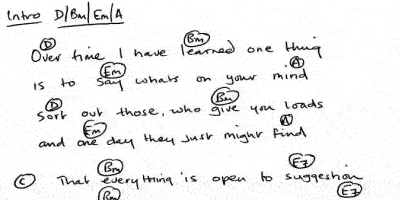 Intro D/Bm/Em/A
D Bm
Over time I have learned one thing
Em A
is to say whats on your mind
D Bm
Sort out those, who give you loads
Em A
and one day they just might find
Bm E7
C That everything is open to suggestion
Bm E7